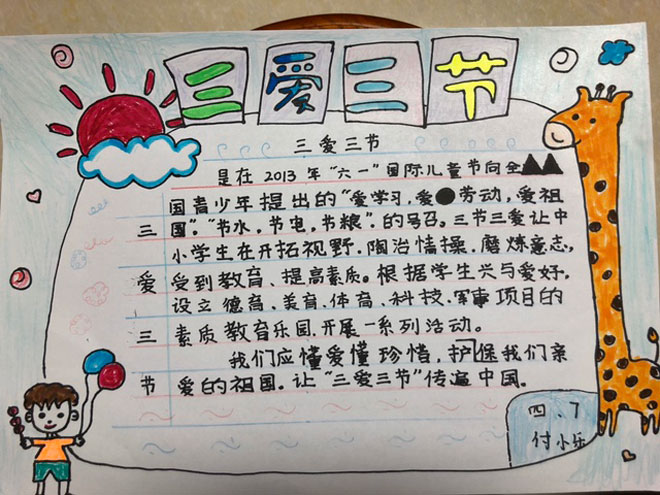 三爱三节
三爱三节
是在2013年“六一”国际儿童节向全
国青少年提出的“爱学习,爱劳动,爱祖
国”.“节水,节电,节粮”.的号召。三节三爱让中
小学生在开拓视野.陶冶情操.磨炼意志,
受到教育、提高素质。根据学生兴与爱好.
设立德育、美育、体育、科技.军事项目的
素质教育乐园.开展一系列活动。
我们应懂爱懂珍惜,护保我们亲
爱的祖国。让“三爱三节”传遍中国。
三
爱
三
节
四、7
付小乐